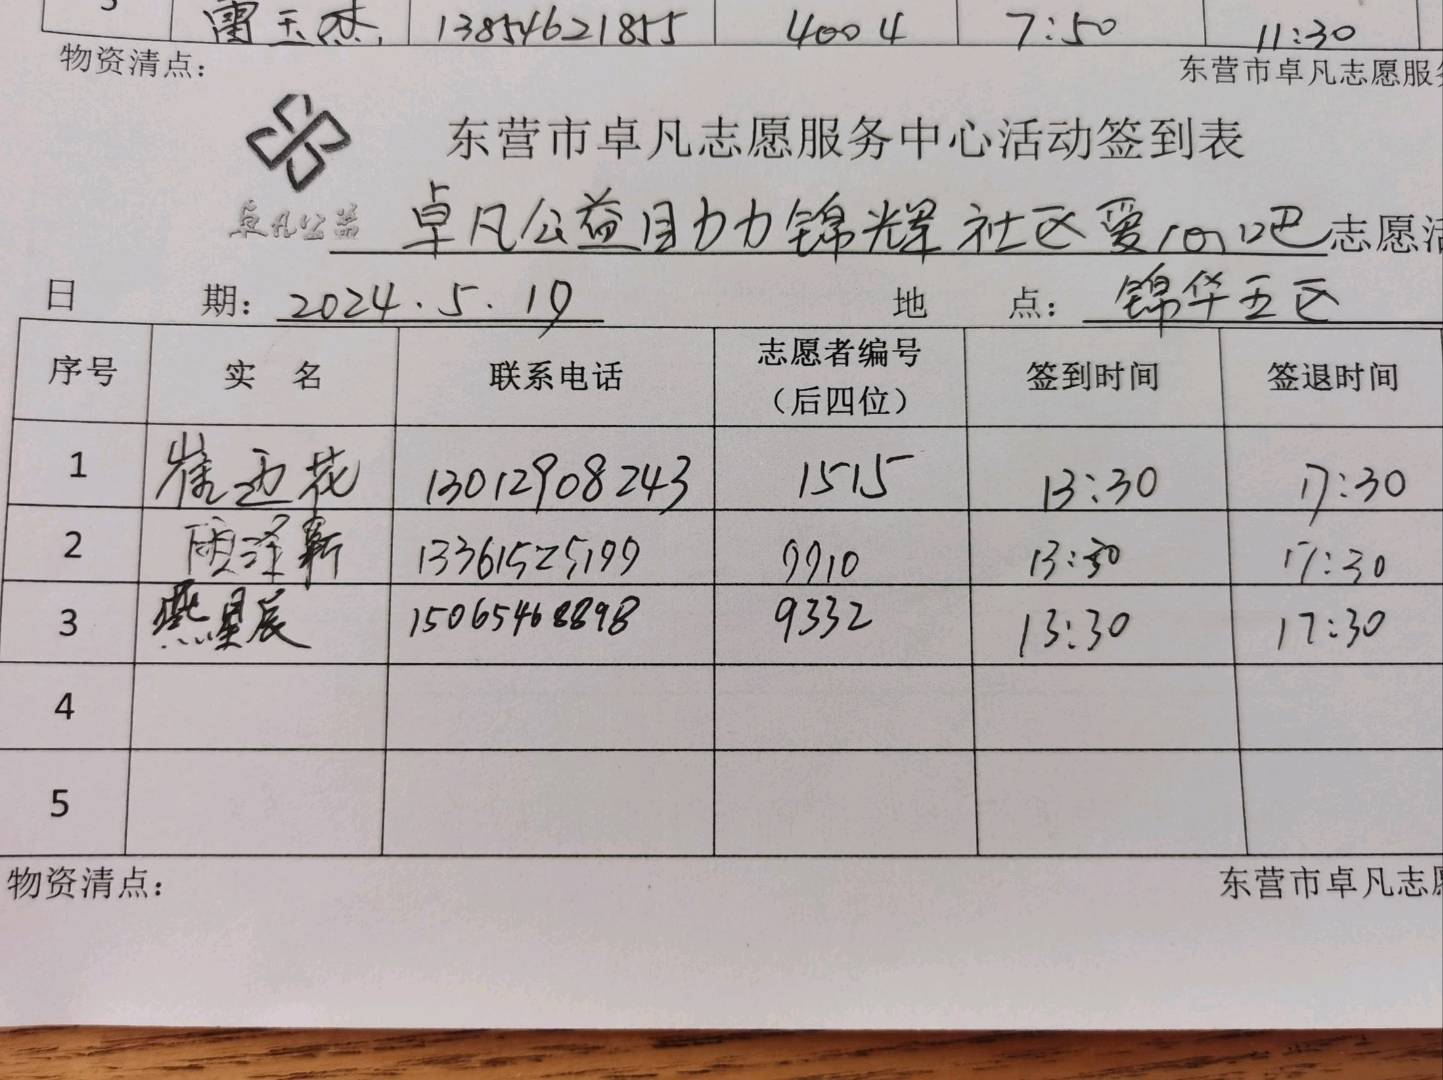 5 雷玉杰 13854621855 4004 7:50 11:30
物资清点: 东营市卓凡志愿服务
东营市卓凡志愿服务中心活动签到表
卓凡公益
卓凡公益自力力锦辉社区爱心吧志愿活
日 期: 2024.5.19 地 点: 锦华五区
序号 实 名 联系电话 志愿者编号 签到时间 签退时间
(后四位)
1 崔迎花 13012908243 1515 13:30 17:30
2 顾泽新 13361525199 9910 13:30 17:30
3 燕星辰 15065468898 9332 13:30 17:30
4
5
物资清点: 东营市卓凡志愿